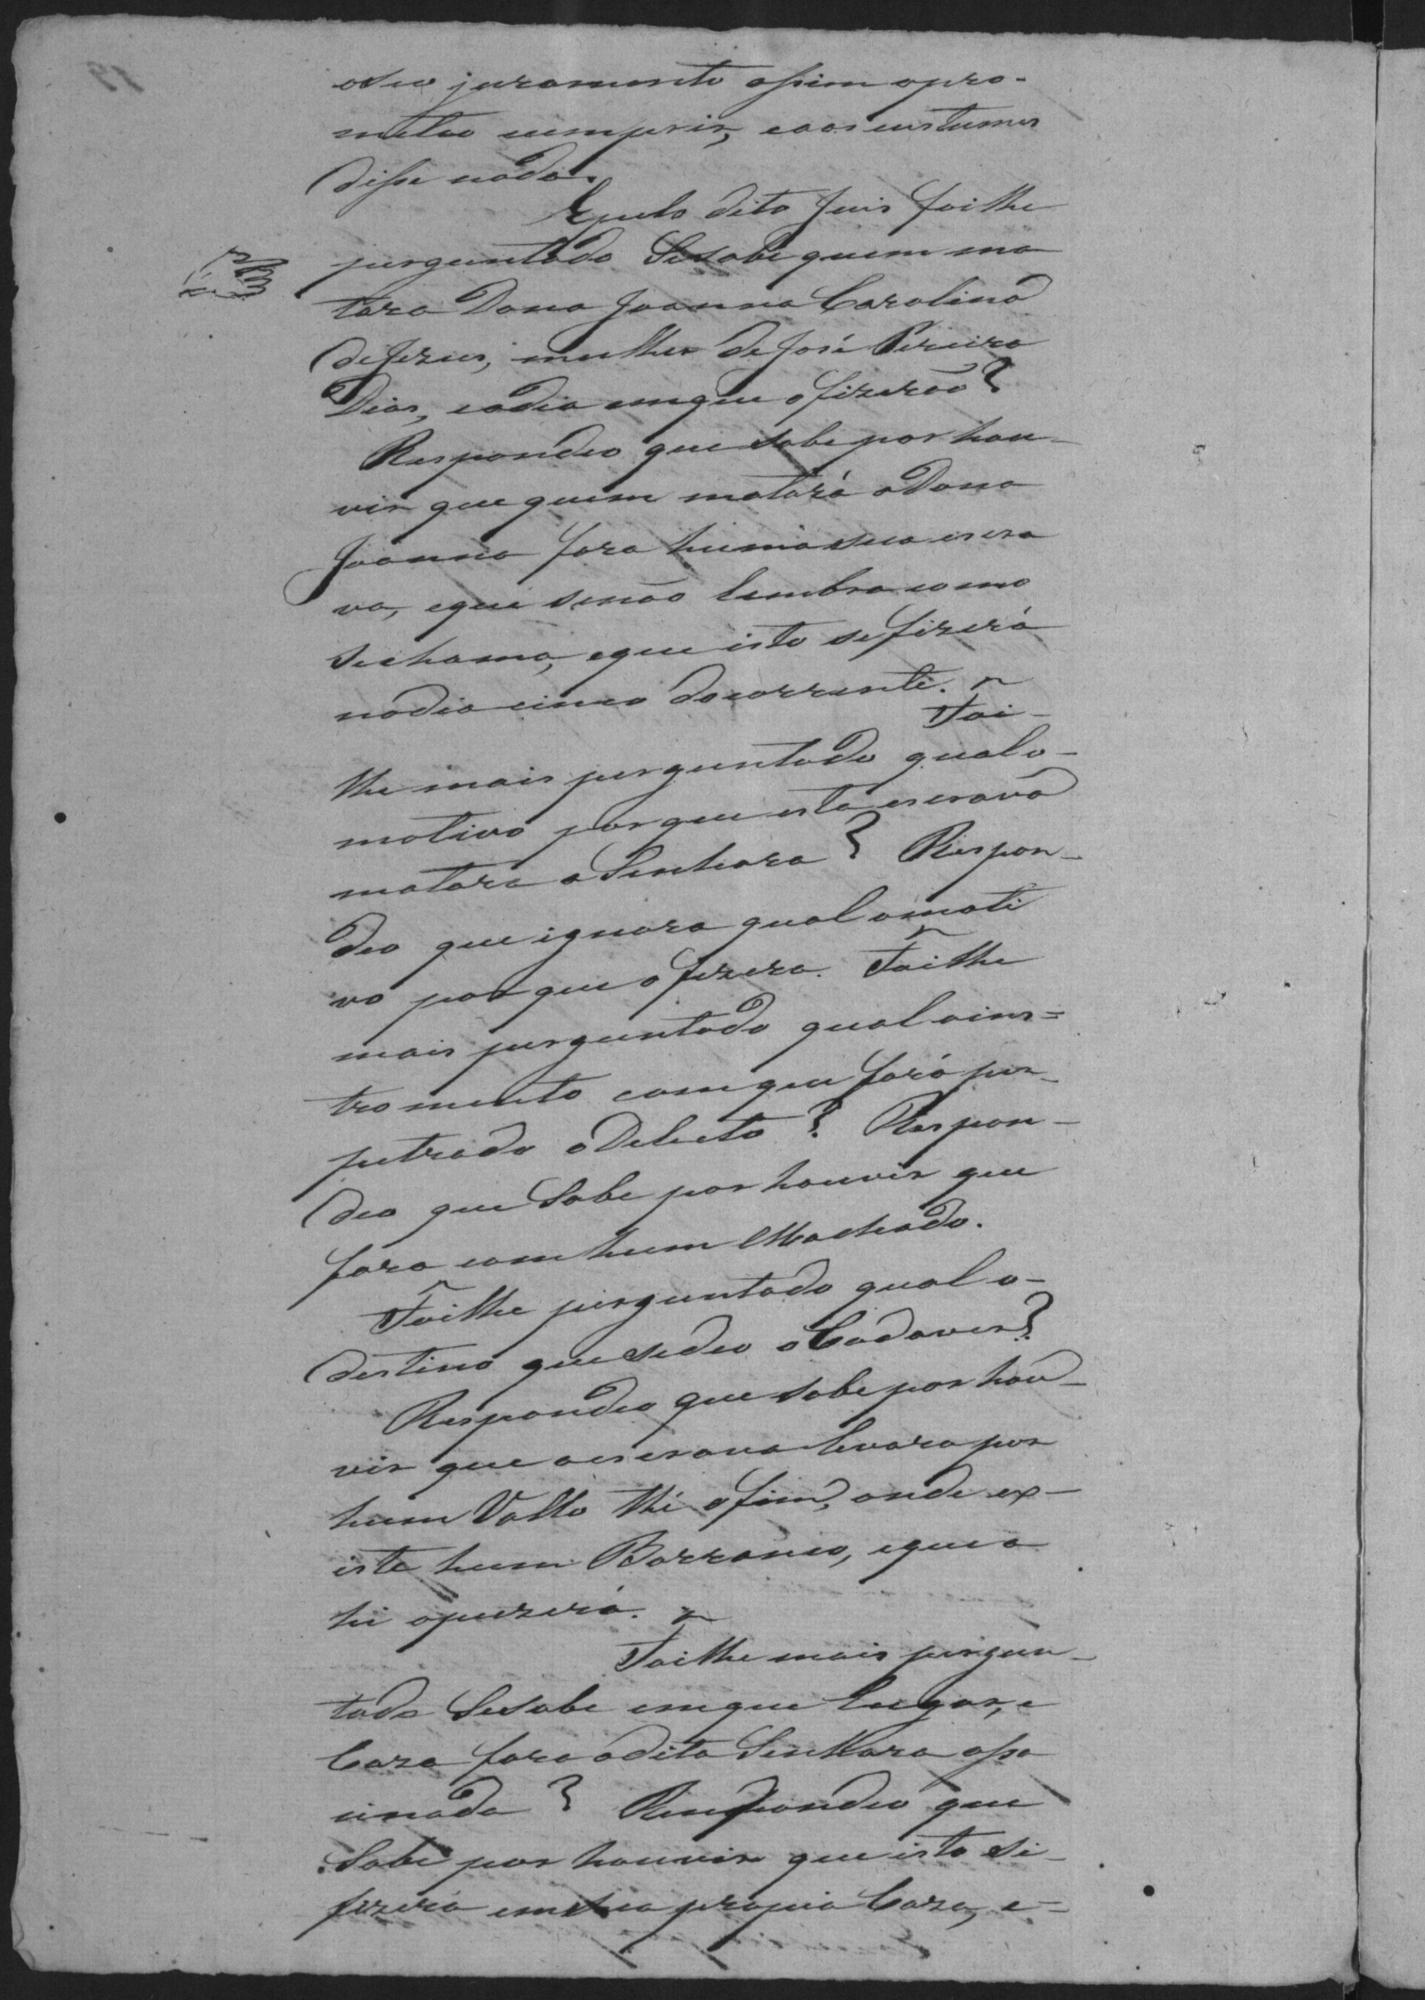 oseo juramento assim opro-
meteo cumprir, eaos custumes
disse nada.
Epelo dito Juis foilhe
perguntado Sesabe quem ma
tara Dona Joanna Carolina
deJezus, mulher deJosé Pereira
Dias, eodia emque ofizerão?
Respondeo que sabe por hou-
vir que quem matará aDona
Joanna fora huma sua escra
va, eque senão lembra como
sechama, eque isto sefizerá
nodia cinco docorrente.
Foi-
lhe mais perguntado qual o-
motivo porque esta escrava
matara aSenhora? Respon-
deo que ignora qual omoti
vo por que ofizera. Foilhe
mais perguntado qual oins=
tromento comque forá per-
petrado oDelicto? Respon-
deo que Sabe por houvir que
fora com hum Machado.
Foilhe perguntado qual o-
destino que sedeo oCadaver?
Respondeo que sabe por hou-
vir que aescrava levara por
hum Vallo thé ofim, onde ex-
iste hum Barranco, eque a
hi opuzerá.
Foilhe mais pergun-
tado Sesabe emque Lugar, e
Caza fora adita Senhora assa
cinada? Respondeo que
Sabe por houvir que isto se-
fizera emsua propia Caza, e=